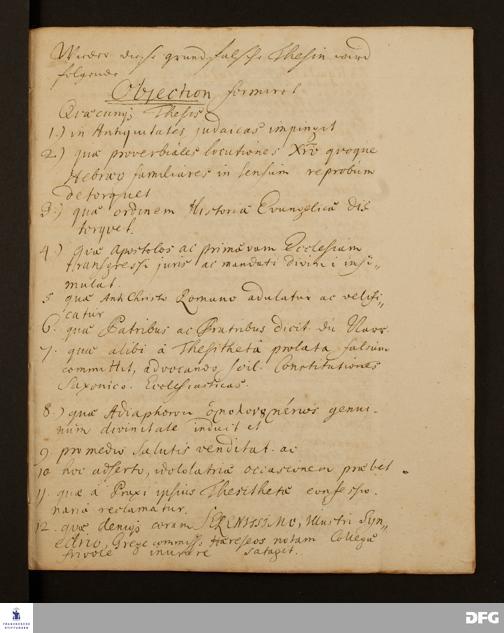 Wieder diese grundfalsche Thesin wird
folgende
Objection formirt
Quæcunq; Thesis
1.) in Antiquitates judaicas impingit
2.) quæ proverbiales locutiones Xto quoque
Hebræo familiares in sensum reprobum
detorquet
3.) quæ ordinem Historiæ Evangelicæ dis
torquet.
4.) quæ Apostolos ac primævam Ecclesiam
transgressi juris ac mandati divini insi-
mulat
5. quæ AntiChristo Romano adulatur ac velifi-
catur
6. quæ Patribus ac Fratribus dicit
7. quæ alibi à Thesithetâ prolata falsum
committit, advocando scil. Constitutiones
Saxonico. Ecclesiasticas.
8.) quæ Adiaphoron genui-
num divinitate induit et
9. pro medio salutis venditat. ac
10 hoc asserto, idololatriæ occasionem præbet.
11. quæ à Praxi ipsius Thesithetæ confessio-
naria reclamatur.
12. quæ deniq; coram SERENISSIMO, Illustri Syn-
edrio, Grege commisso Hæreseos notam Collegæ
frivole inurere satagit.
FRANCKESCHE
STIFTUNGEN
DFG